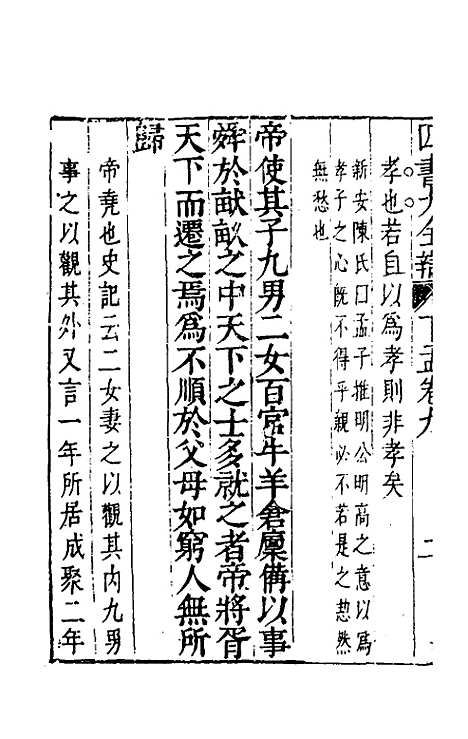 四書大全辯 下孟卷九 二
孝也若自以爲孝則非孝矣
新安陳氏曰孟子推明公明高之意以爲
孝子之心旣不得乎親必不若是之恝然
無愁也
帝使其子九男二女百官牛羊倉廩備以事
舜於畎畝之中天下之士多就之者帝將胥
天下而遷之焉爲不順於父母如窮人無所
歸
帝堯也史記云二女妻之以觀其内九男
事之以觀其外又言一年所居成聚二年